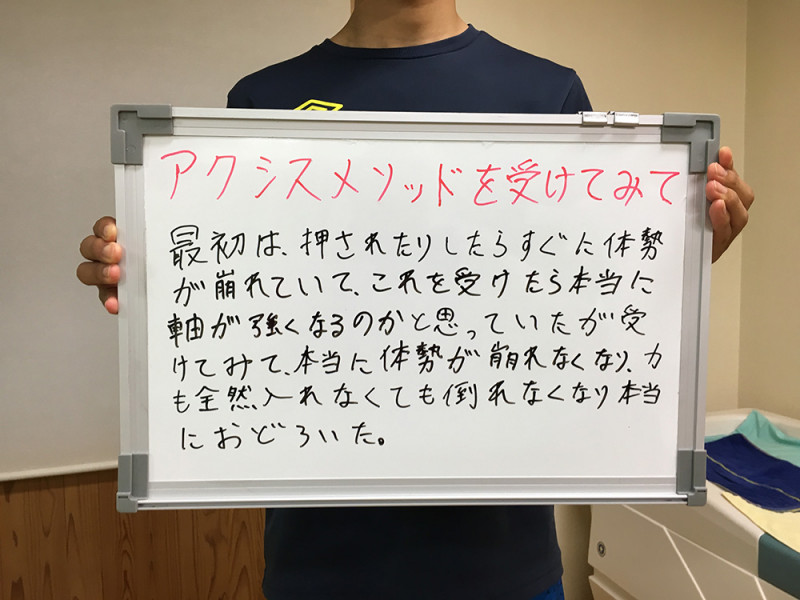 アクシスメソッドを受けてみて
最初は、押されたりしたらすぐに体勢
が崩れていて、これを受けたら本当に
軸が強くなるのかと思っていたが受
けてみて、本当に体勢が崩れなくなり、力
も全然入れなくても倒れなくなり本当
におどろいた。